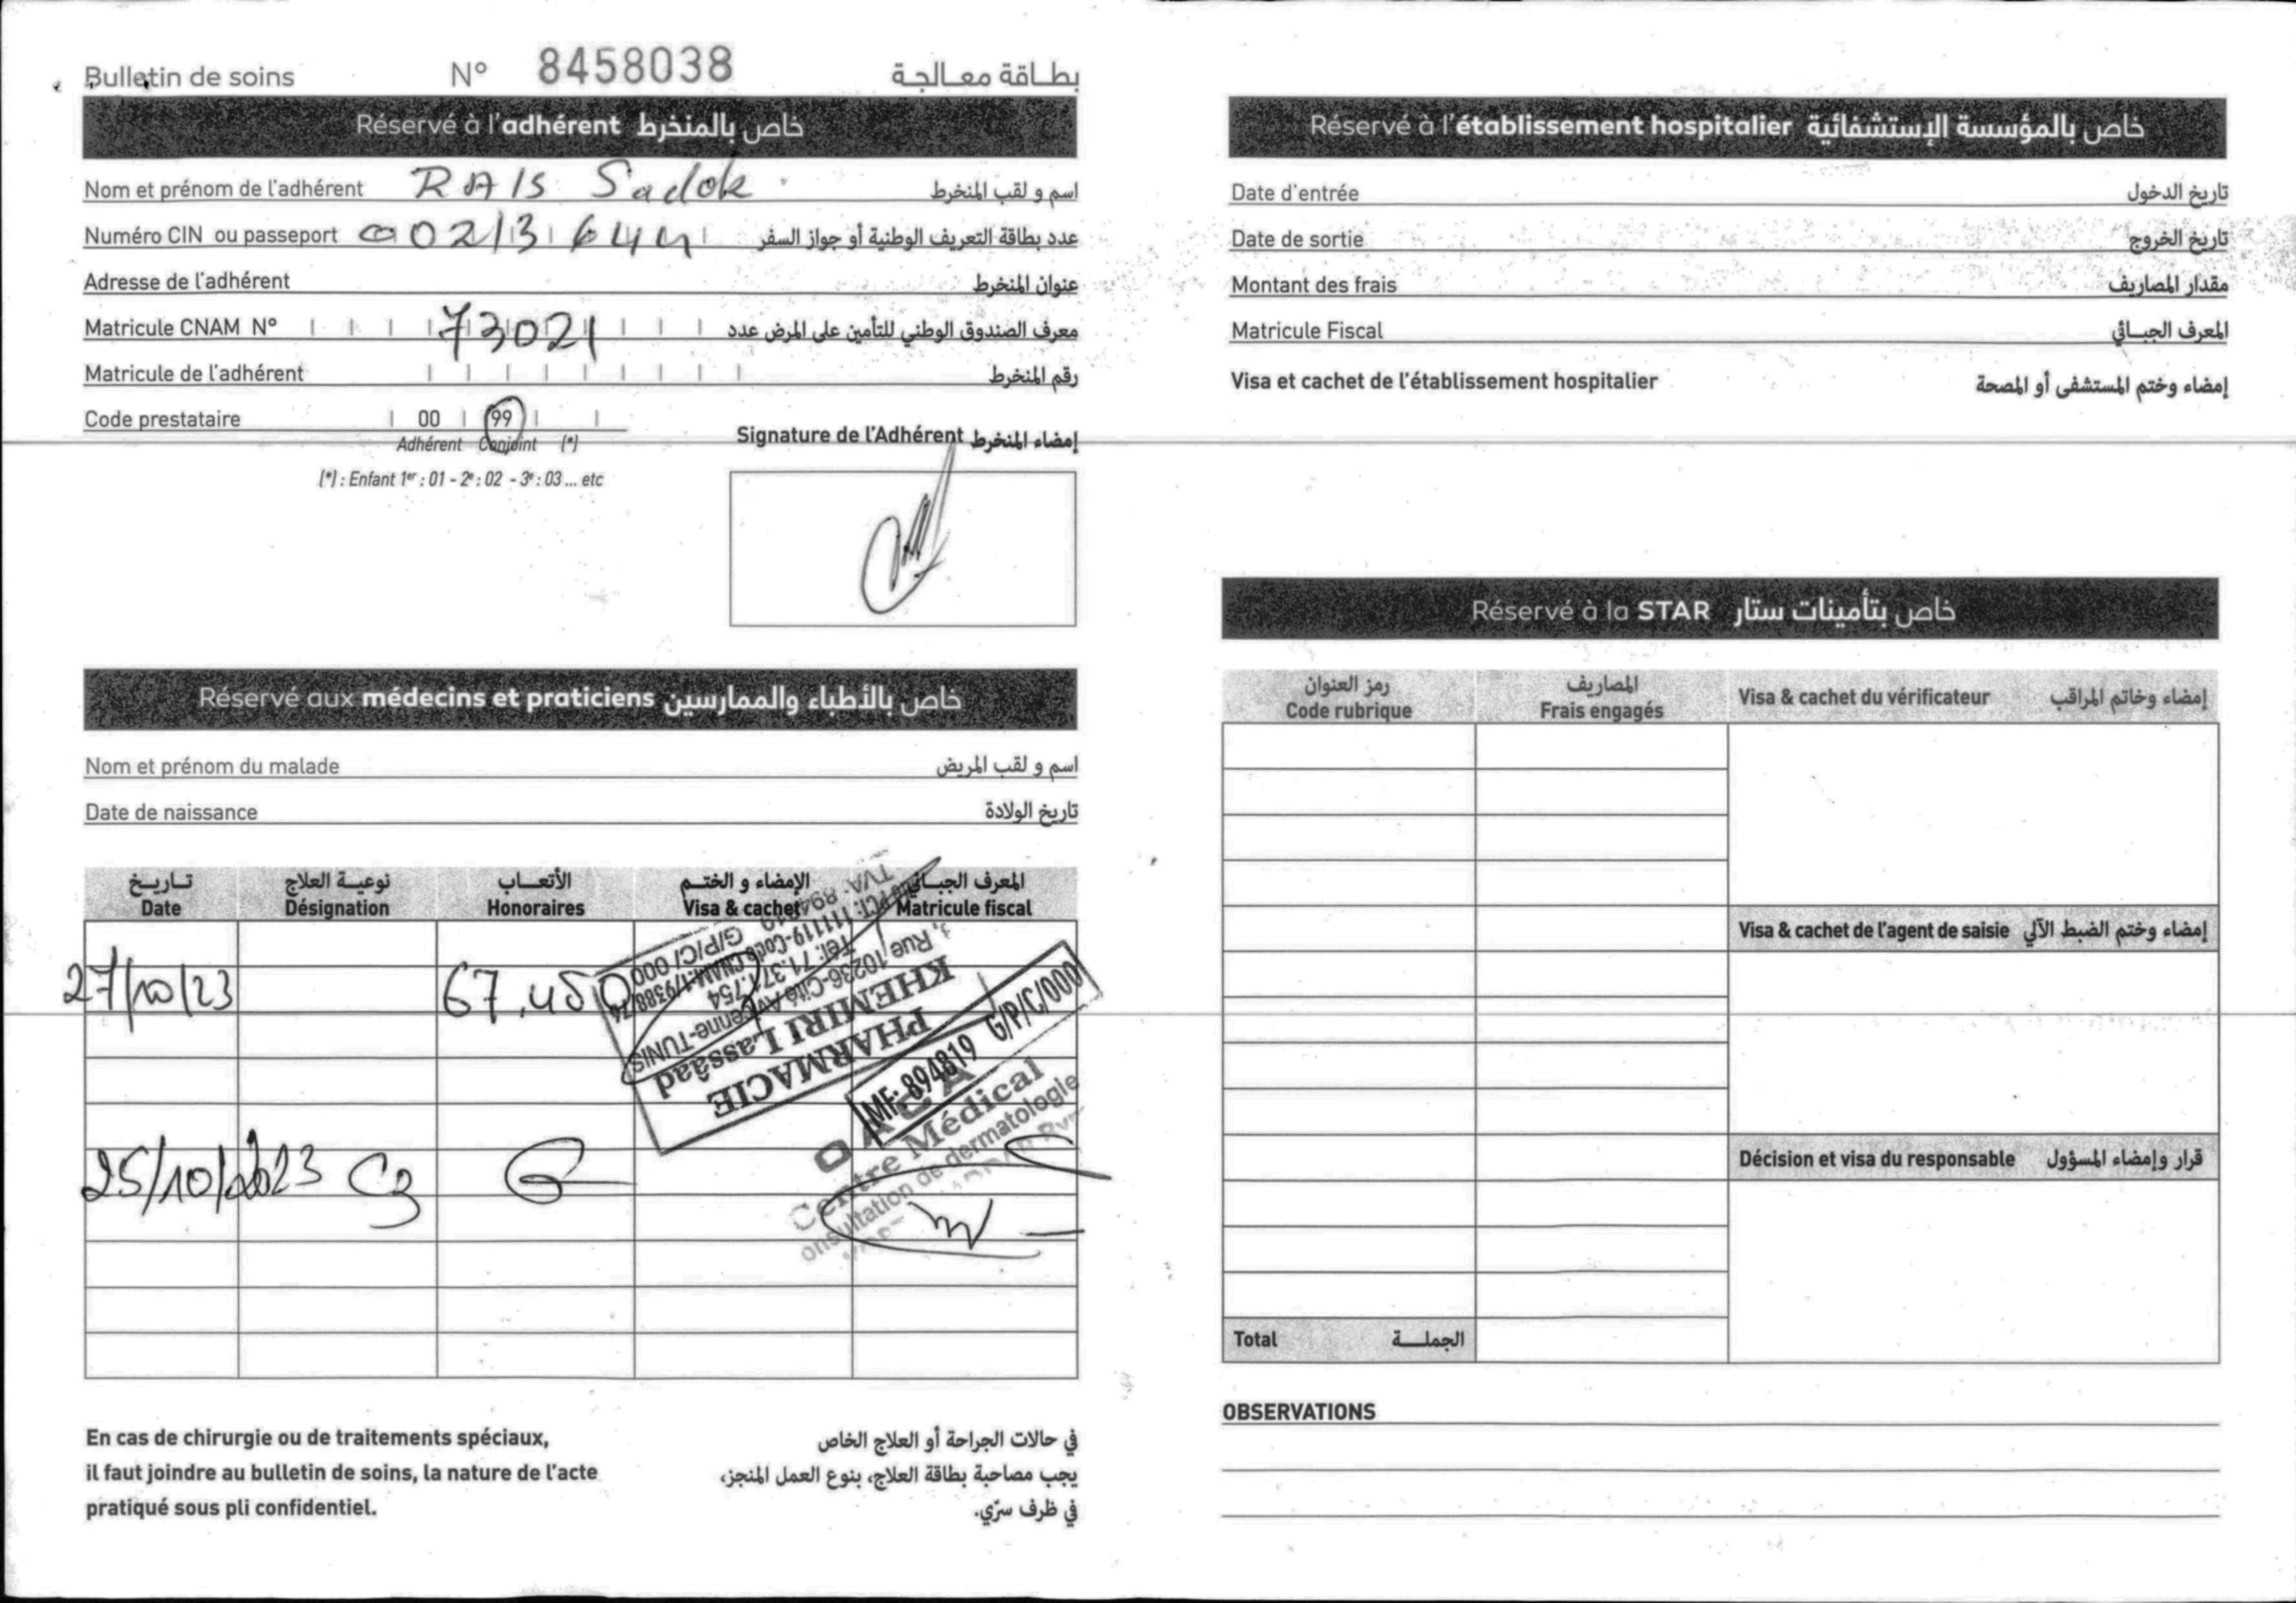 Bulletin de soins N° 8458038 بطاقة معالجة
Réservé à l'adhérent خاص بالمنخرط
Nom et prénom de l'adhérent RAIS Sadok اسم و لقب المنخرط
Numéro CIN ou passeport عدد بطاقة التعريف الوطنية أو جواز السفر
Adresse de l'adhérent عنوان المنخرط
Matricule CNAM N° 73021 معرف الصندوق الوطني للتأمين على المرض عدد
Matricule de l'adhérent رقم المنخرط
Code prestataire 00 99
Adhérent Conjoint (*)
(*) : Enfant 1er : 01 - 2e : 02 - 3e : 03 ... etc
Signature de l'Adhérent إمضاء المنخرط
Réservé aux médecins et praticiens خاص بالأطباء والممارسين
Nom et prénom du malade اسم و لقب المريض
Date de naissance تاريخ الولادة
تاريخ نوعية العلاج الأتعاب الإمضاء و الختم المعرف الجبائي
Date Désignation Honoraires Visa & cachet Matricule fiscal
27/10/23 67,450
PHARMACIE
KHEMIRI Lassâad
MF: 894819 G/P/C/000
25/10/2023 C3 G
Centre Médical
En cas de chirurgie ou de traitements spéciaux,
il faut joindre au bulletin de soins, la nature de l'acte
pratiqué sous pli confidentiel.
في حالات الجراحة أو العلاج الخاص
يجب مصاحبة بطاقة العلاج، بنوع العمل المنجز،
في ظرف سرّي.
Réservé à l'établissement hospitalier خاص بالمؤسسة الإستشفائية
Date d'entrée تاريخ الدخول
Date de sortie تاريخ الخروج
Montant des frais مقدار المصاريف
Matricule Fiscal المعرف الجبائي
Visa et cachet de l'établissement hospitalier إمضاء وختم المستشفى أو المصحة
Réservé à la STAR خاص بتأمينات ستار
رمز العنوان المصاريف
Code rubrique Frais engagés Visa & cachet du vérificateur إمضاء وخاتم المراقب
Visa & cachet de l'agent de saisie إمضاء وختم الضبط الآلي
Décision et visa du responsable قرار وإمضاء المسؤول
Total الجملة
OBSERVATIONS